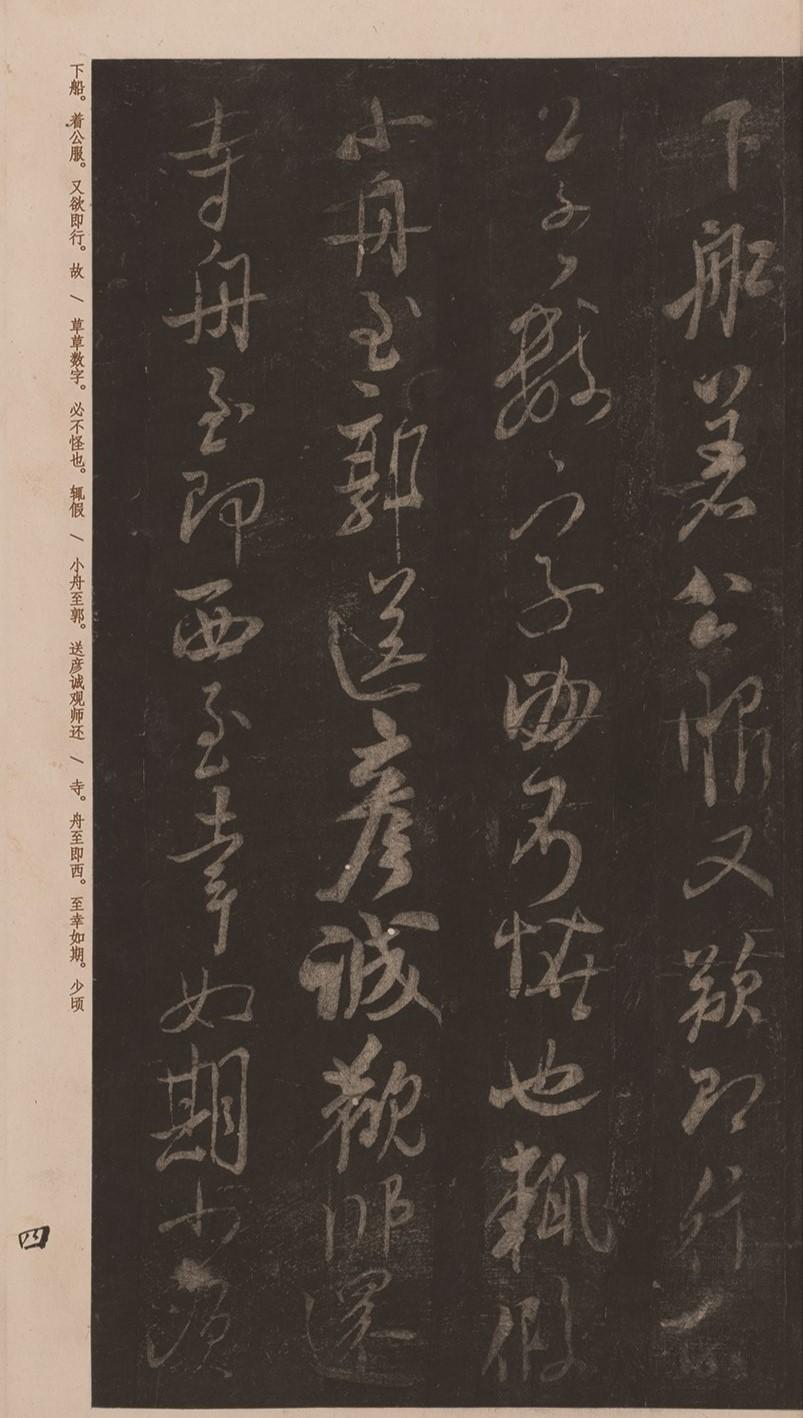 下舩著公服又欲即行
草草數字必不怪也輒假
小舟至郭送彥誠觀師還
寺舟至即西至幸如期少頃
下船。着公服。又欲即行。故/草草数字。必不怪也。辄假/小舟至郭。送彦诚观师还/寺。舟至即西。至幸如期。少顷
四